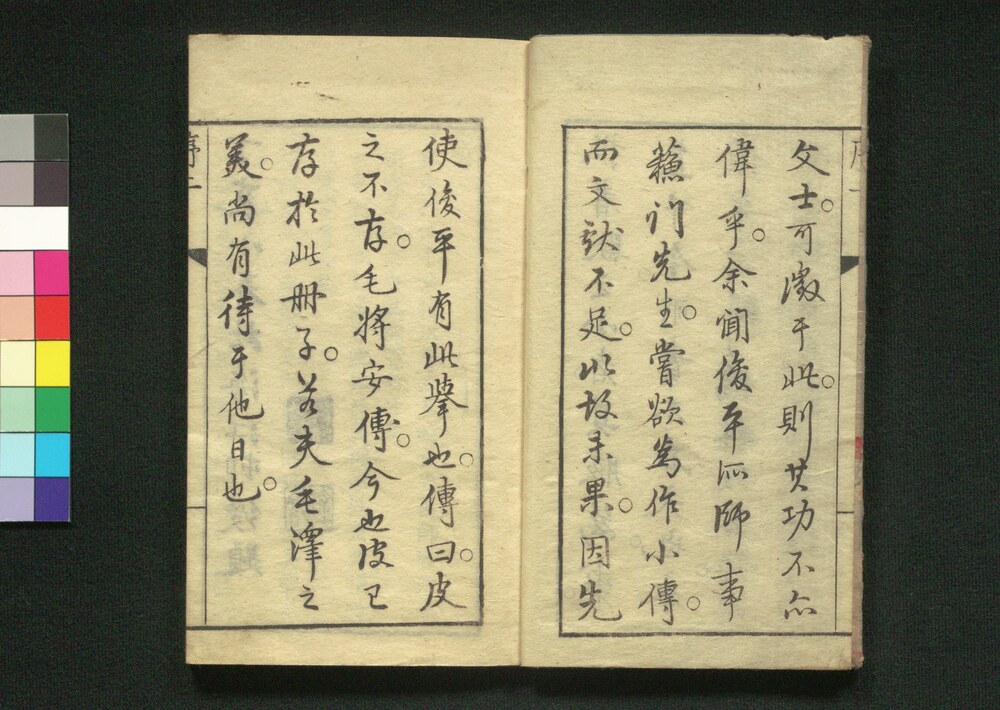 文士。可徵于此。則其功不亦
偉乎。余聞俊平所師事
蘓門先生。嘗欲為作小傳。
而文献不足。以故未果。因先
使俊平有此挙也。傳曰。皮
之不存。毛将安傳。今也皮已
存於此冊子。若夫毛澤之
美。尚有待于他日也。
序二